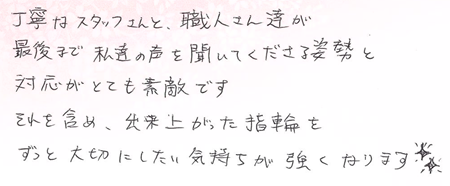 丁寧なスタッフさんと、職人さん達が
最後まで私達の声を聞いてくださる姿勢と
対応がとても素敵です
それを含め、出来上がった指輪を
ずっと大切にしたい気持ちが強くなります